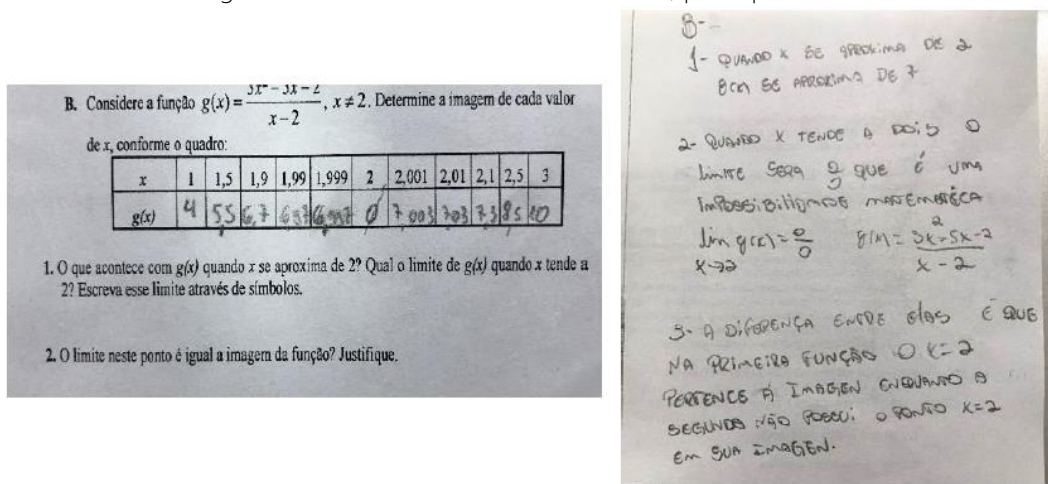 B. Considere a função g(x) = (3x² - 5x - 2)/(x - 2), x ≠ 2. Determine a imagem de cada valor
de x, conforme o quadro:
x 1 1,5 1,9 1,99 1,999 2 2,001 2,01 2,1 2,5 3
g(x) 4 5,5 6,7 6,97 6,997 0 7,003 7,03 7,3 8,5 10
1. O que acontece com g(x) quando x se aproxima de 2? Qual o limite de g(x) quando x tende a
2? Escreva esse limite através de símbolos.
2. O limite neste ponto é igual a imagem da função? Justifique.
B-
1- QUANDO X SE APROXIMA DE 2
g(x) SE APROXIMA DE 7
2- QUANDO X TENDE A DOIS O
LIMITE SERA 0/0 QUE É UMA
IMPOSSIBILIDADE MATEMÁTICA
lim g(x) = 0/0 g(x) = 3x² - 5x - 2
x→2 x - 2
3- A DIFERENÇA ENTRE ELAS É QUE
NA PRIMEIRA FUNÇÃO O X=2
PERTENCE À IMAGEN ENQUANTO A
SEGUNDA NÃO POSSUI O PONTO X=2
EM SUA IMAGEN.